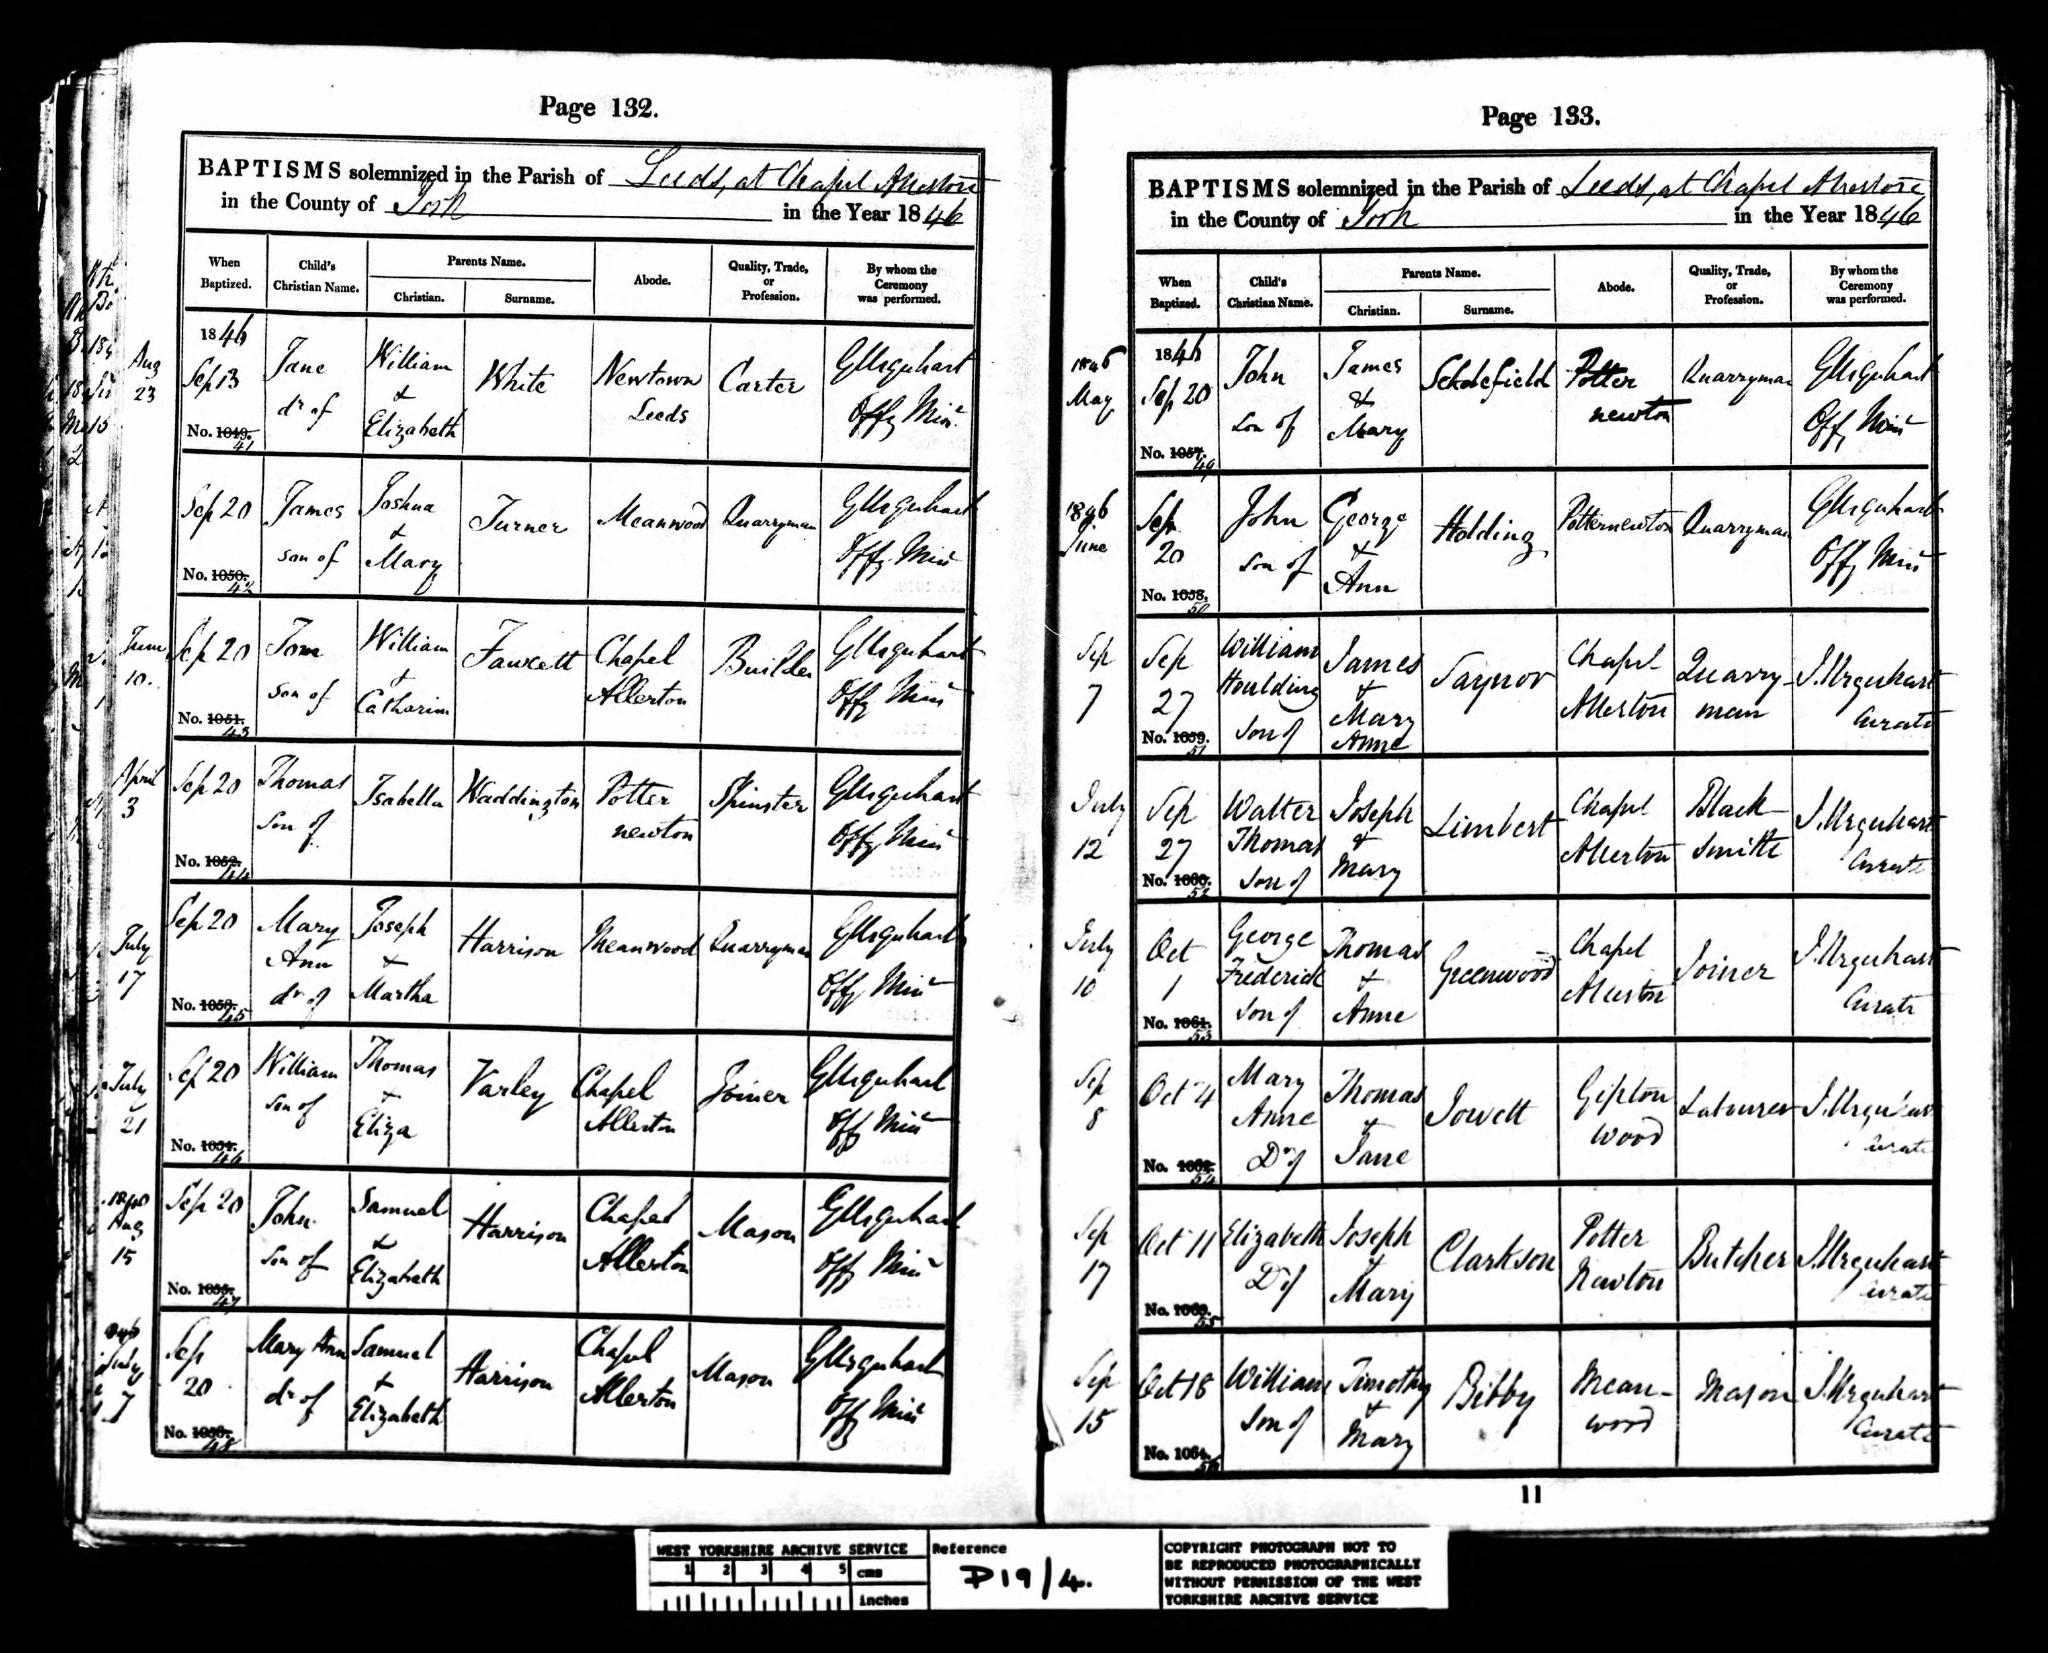 Page 132.
BAPTISMS solemnized in the Parish of Leeds, at Chapel Allerton
in the County of York in the Year 1846
When Baptized. Child's Christian Name. Parents Name. Christian. Surname. Abode. Quality, Trade, or Profession. By whom the Ceremony was performed.
Aug 23
1846 Sep 13 No. 1049. 41 Jane dr of William & Elizabeth White Newtown Leeds Carter G Urquhart Offg Minr
Sep 20 No. 1050. 42 James son of Joshua & Mary Turner Meanwood Quarryman G Urquhart Offg Minr
June 10.
Sep 20 No. 1051. 43 Tom son of William + Catharine Fawcett Chapel Allerton Builder G Urquhart Offg Minr
April 3
Sep 20 No. 1052. 44 Thomas son of Isabella Waddington Potter newton Spinster G Urquhart Offg Minr
July 17
Sep 20 No. 1053. 45 Mary Ann dr of Joseph + Martha Harrison Meanwood Quarryman G Urquhart Offg Minr
July 21
Sep 20 No. 1054. 46 William son of Thomas + Eliza Varley Chapel Allerton Joiner G Urquhart Off Minr
Aug 15
Sep 20 No. 1055. 47 John son of Samuel & Elizabeth Harrison Chapel Allerton Mason G Urquhart Off Minr
July 7
Sep 20 No. 1056. 48 Mary Ann dr of Samuel + Elizabeth Harrison Chapel Allerton Mason G Urquhart Off Minr
Page 133.
BAPTISMS solemnized in the Parish of Leeds, at Chapel Allerton
in the County of York in the Year 1846
When Baptized. Child's Christian Name. Parents Name. Christian. Surname. Abode. Quality, Trade, or Profession. By whom the Ceremony was performed.
1846 May
1846 Sep 20 No. 1057. 49 John son of James & Mary Scholefield Potter newton Quarryman G Urquhart Off Minr
1846 June
Sep 20 No. 1058. 50 John son of George + Ann Holding Potternewton Quarryman G Urquhart Offg Minr
Sep 7
Sep 27 No. 1059. 51 William Houlding son of James + Mary Anne Saynor Chapel Allerton Quarry man J. Urquhart Curate
July 12
Sep 27 No. 1060. 52 Walter Thomas son of Joseph + Mary Limbert Chapel Allerton Black smith J. Urquhart Curate
July 10
Oct 1 No. 1061. 53 George Frederick son of Thomas + Anne Greenwood Chapel Allerton Joiner J. Urquhart Curate
Sep 8
Oct 4 No. 1062. 54 Mary Anne Dr of Thomas + Jane Jowett Gipton Wood Labourer J. Urquhart Curate
Sep 17
Oct 11 No. 1063. 55 Elizabeth D of Joseph + Mary Clarkson Potter Newton Butcher J. Urquhart Curate
Sep 15
Oct 18 No. 1064. 56 William Son of Timothy + Mary Bibby Mean-wood Mason J. Urquhart Curate
11
WEST YORKSHIRE ARCHIVE SERVICE
1 2 3 4 5 cms
inches
Reference
D19/4.
COPYRIGHT PHOTOGRAPH NOT TO
BE REPRODUCED PHOTOGRAPHICALLY
WITHOUT PERMISSION OF THE WEST
YORKSHIRE ARCHIVE SERVICE